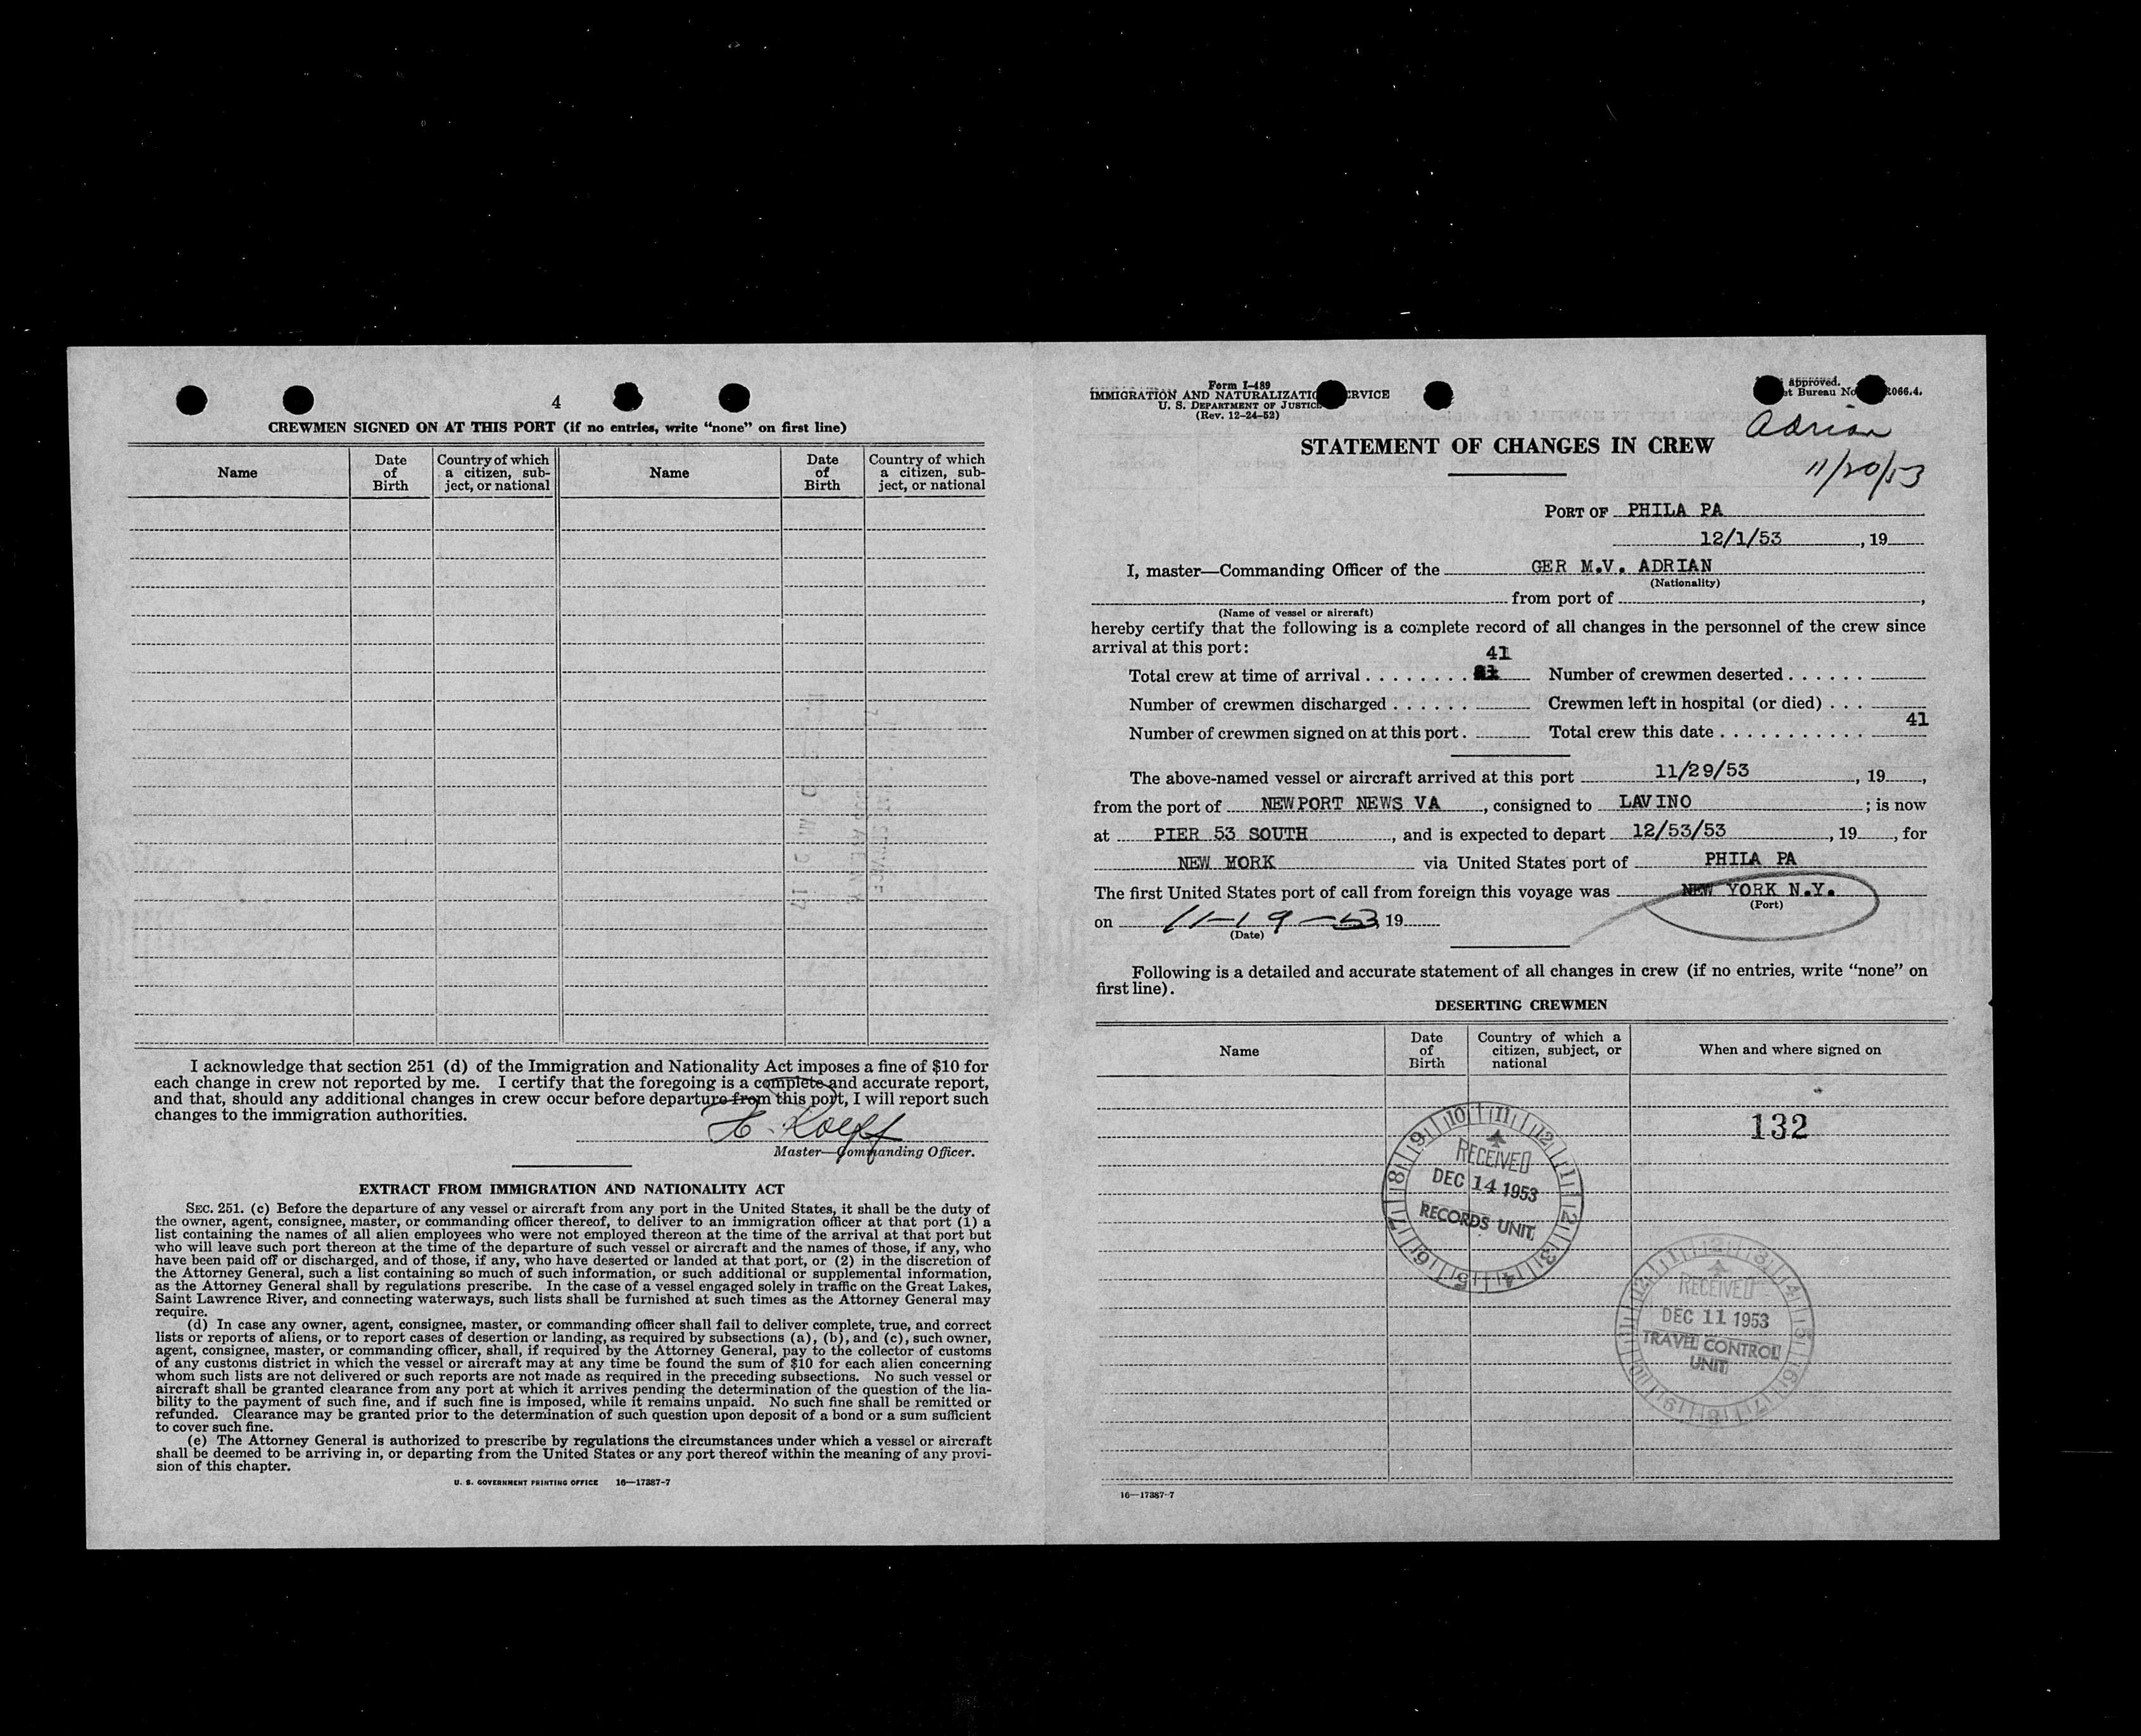 4
CREWMEN SIGNED ON AT THIS PORT (if no entries, write "none" on first line)
Name
Date of Birth
Country of which a citizen, subject, or national
Name
Date of Birth
Country of which a citizen, subject, or national
I acknowledge that section 251 (d) of the Immigration and Nationality Act imposes a fine of $10 for
each change in crew not reported by me. I certify that the foregoing is a complete and accurate report,
and that, should any additional changes in crew occur before departure from this port, I will report such
changes to the immigration authorities.
Master—Commanding Officer.
EXTRACT FROM IMMIGRATION AND NATIONALITY ACT
SEC. 251. (c) Before the departure of any vessel or aircraft from any port in the United States, it shall be the duty of
the owner, agent, consignee, master, or commanding officer thereof, to deliver to an immigration officer at that port (1) a
list containing the names of all alien employees who were not employed thereon at the time of the arrival at that port but
who will leave such port thereon at the time of the departure of such vessel or aircraft and the names of those, if any, who
have been paid off or discharged, and of those, if any, who have deserted or landed at that port, or (2) in the discretion of
the Attorney General, such a list containing so much of such information, or such additional or supplemental information,
as the Attorney General shall by regulations prescribe. In the case of a vessel engaged solely in traffic on the Great Lakes,
Saint Lawrence River, and connecting waterways, such lists shall be furnished at such times as the Attorney General may
require.
(d) In case any owner, agent, consignee, master, or commanding officer shall fail to deliver complete, true, and correct
lists or reports of aliens, or to report cases of desertion or landing, as required by subsections (a), (b), and (c), such owner,
agent, consignee, master, or commanding officer, shall, if required by the Attorney General, pay to the collector of customs
of any customs district in which the vessel or aircraft may at any time be found the sum of $10 for each alien concerning
whom such lists are not delivered or such reports are not made as required in the preceding subsections. No such vessel or
aircraft shall be granted clearance from any port at which it arrives pending the determination of the question of the lia-
bility to the payment of such fine, and if such fine is imposed, while it remains unpaid. No such fine shall be remitted or
refunded. Clearance may be granted prior to the determination of such question upon deposit of a bond or a sum sufficient
to cover such fine.
(e) The Attorney General is authorized to prescribe by regulations the circumstances under which a vessel or aircraft
shall be deemed to be arriving in, or departing from the United States or any port thereof within the meaning of any provi-
sion of this chapter.
U. S. GOVERNMENT PRINTING OFFICE 16—17387-7
Form I-489
IMMIGRATION AND NATURALIZATIO RVICE
U. S. DEPARTMENT OF JUSTICE
(Rev. 12-24-52)
approved.
et Bureau No. 066.4.
Adrian
11/20/53
STATEMENT OF CHANGES IN CREW
PORT OF PHILA PA
12/1/53, 19
I, master—Commanding Officer of the GER M.V. ADRIAN
(Nationality)
from port of ,
(Name of vessel or aircraft)
hereby certify that the following is a complete record of all changes in the personnel of the crew since
arrival at this port:
41
Total crew at time of arrival . . . . . . . . Number of crewmen deserted . . . . . .
Number of crewmen discharged . . . . . . Crewmen left in hospital (or died) . . .
Number of crewmen signed on at this port . Total crew this date . . . . . . . . . . . 41
The above-named vessel or aircraft arrived at this port 11/29/53, 19 ,
from the port of NEWPORT NEWS VA, consigned to LAVINO ; is now
at PIER 53 SOUTH, and is expected to depart 12/53/53, 19 , for
NEW YORK via United States port of PHILA PA
The first United States port of call from foreign this voyage was NEW YORK N.Y.
(Port)
on 11-19-53, 19
(Date)
Following is a detailed and accurate statement of all changes in crew (if no entries, write "none" on
first line).
DESERTING CREWMEN
Name
Date of Birth
Country of which a citizen, subject, or national
When and where signed on
132
10 11 12 1 2 3 4 5 6 7 8 9
RECEIVED
DEC 14 1953
RECORDS UNIT
12 1 2 3 4 5 6 7 8 9 10 11
RECEIVED
DEC 11 1953
TRAVEL CONTROL
UNIT
16—17387-7